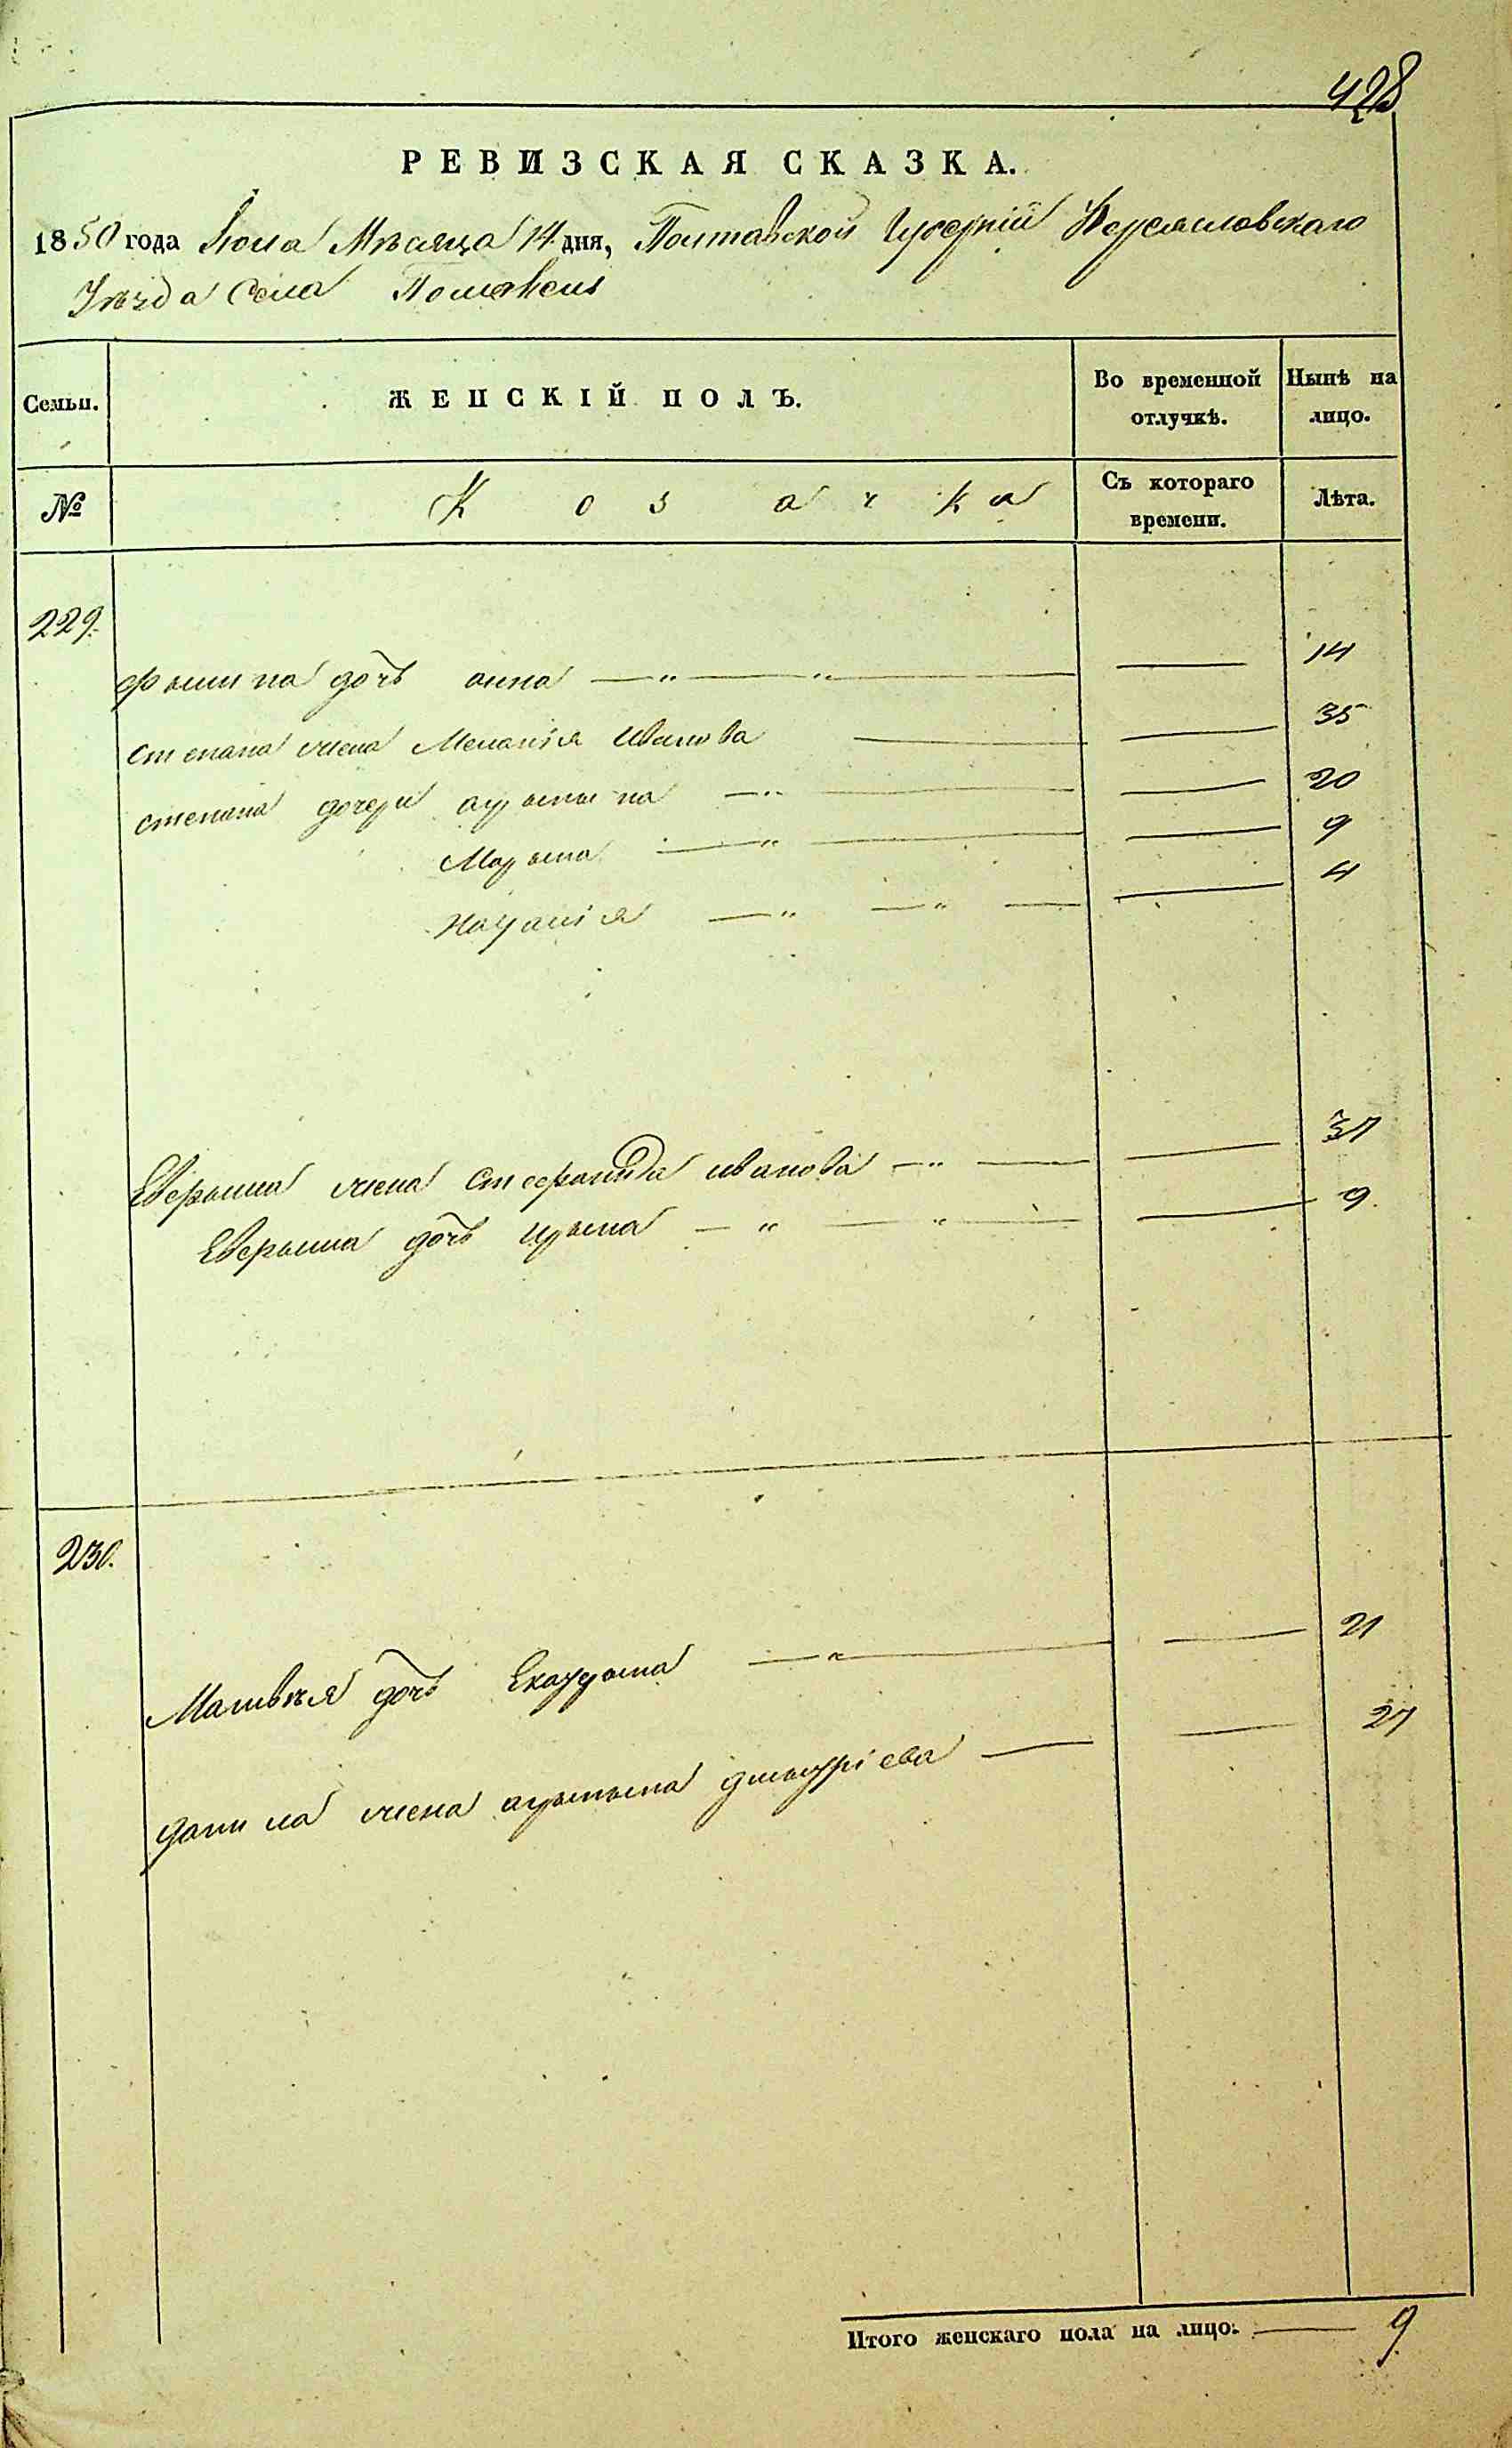 428
РЕВИЗСКАЯ СКАЗКА.
1850 года Июля Мѣсяца 14 дня, Полтавской Губернїи Переяславскаго
Уѣзда Села Помоклей
Семьи. ЖЕНСКІЙ ПОЛЪ. Во временной отлучкѣ. Нынѣ на лицо.
№ Козачка Съ котораго времени. Лѣта.
229.
Филипа дочь анна — " — " — — 14
степана жена Меланія иванова — — 35
степана дочери — " — — 20
Марына — " — — 9
Наталія — " — " — — 4
жена Стефанида иванова — " — — 37
дочь ирына — " — " — — 9.
230.
Матвѣя дочь — " — — 21
данила жена дмытріева — — 27
Итого женскаго пола на лицо: — 9